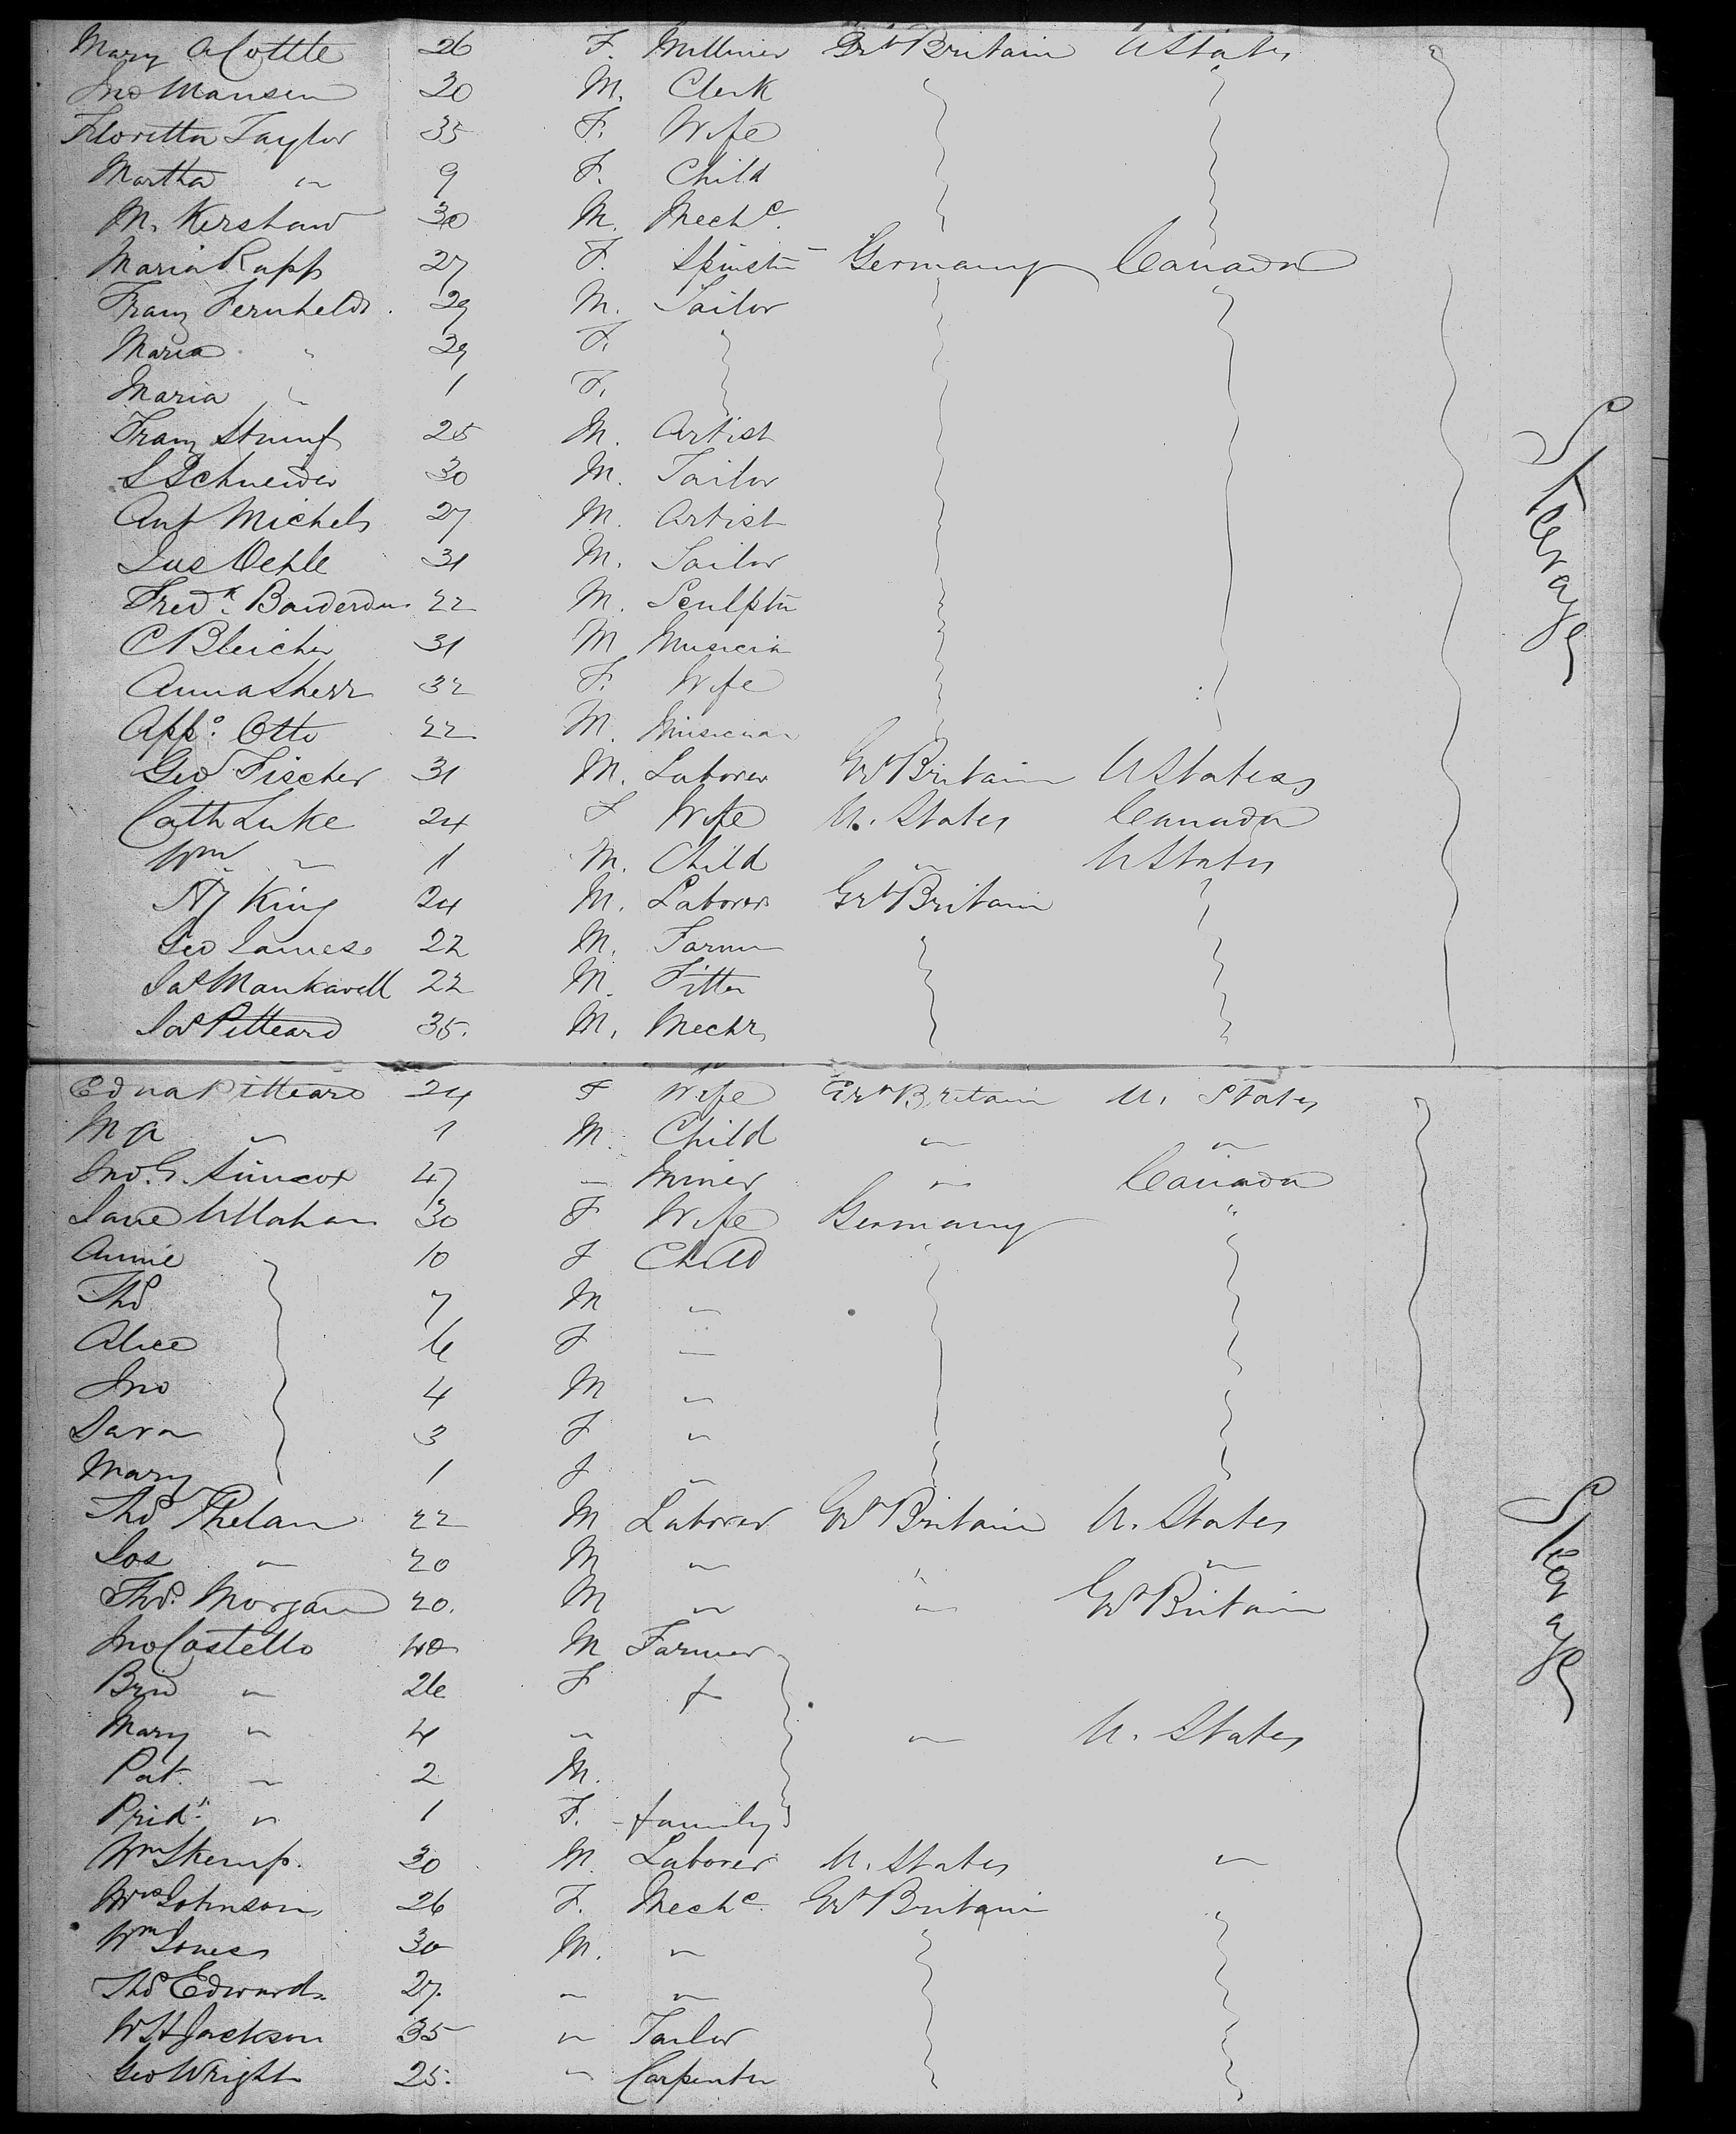 Mary A Cottle 26 F. Milliner Grt Britain U States
Jno Mansen 20 M. Clerk
Floretta Taylor 35 F. Wife
Martha " 9 F. Child
M. Kershaw 30 M. Mechc.
Maria Rapp 27 F. Spinstr Germany Canada
Franz Fernheldr. 29 M. Tailor
Maria " 29 F.
Maria " 1 F.
Franz Stumf 25 M. Artist
S Schneider 30 M. Tailor
Ant Michels 27 M. Artist
Jus Oehle 31 M. Tailor
Fredk. 22 M. Sculptr
C Bleicher 31 M Musicia
Anna Sherr 32 F. Wife
Appo. Otto 22 M. Musician
Geo Fischer 31 M. Laborer Grt Britain U States
Cath Luke 24 F Wife U. States Canada
Wm " 1 M. Child " U States
Hy King 24 M. Laborer Grt Britain
Geo James 22 M. Farmer
Jas Mankavell 22 M. Fitter
Jas Pitteard 35. M. Mechc
Steerage
Edna Pitteard 24 F Wife Grt Britain U. States
M A " 1 M. Child " "
Jno. G. Simcox 47 " Miner " Canada
Jane 30 F Wife Germany "
Annie 10 F Child
Thos 7 M "
Alice 6 F "
Jno 4 M "
Sara 3 F "
Mary 1 F "
Thos Phelan 22 M Laborer Grt Britain U. States
Jos " 20 M " " "
Thos. Morgan 20. M " " Grt Britain
Jno Costello 40 M Farmer
Brid " 26 F f
Mary " 4 " " U. States
Pat. " 2 M.
Brid. " 1 F. family
Wm Skemp. 30 M. Laborer U. States "
Mrs Johnson 26 F. Mechc. Grt Britain
Wm Jones 30 M. "
Thos Edwards 27. " "
W H Jackson 35 " Tailor
Geo Wright 25. " Carpenter
Steerage